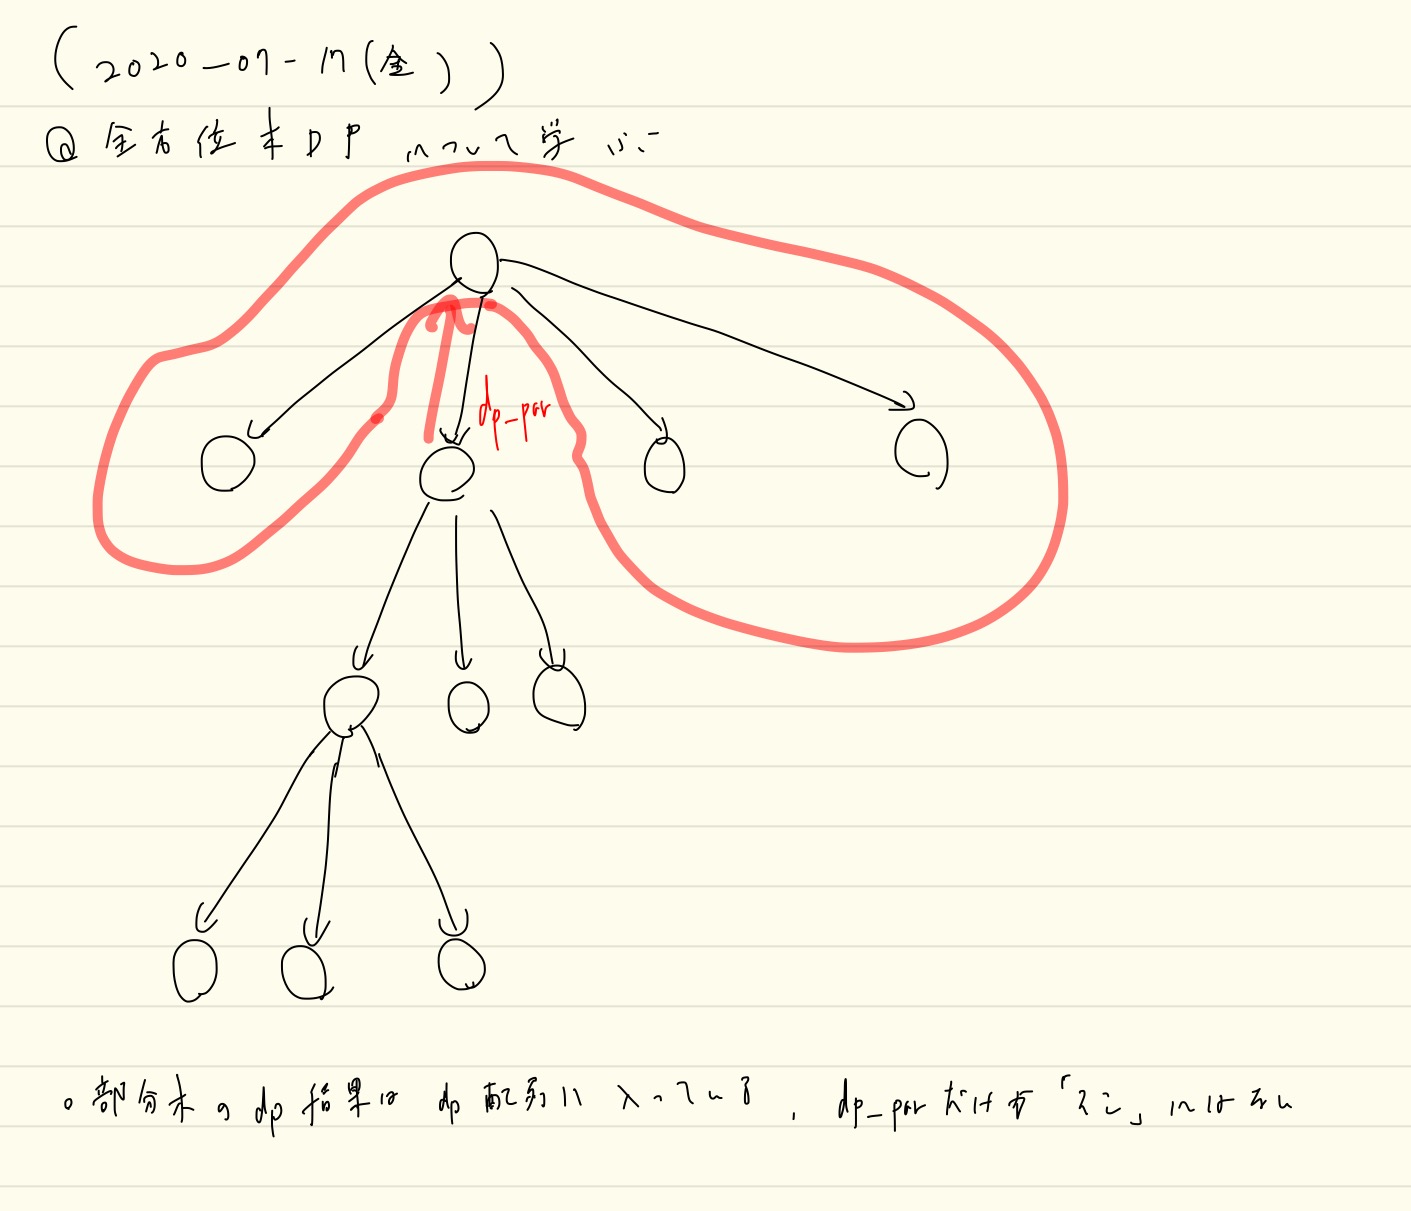 (2020-07-17(金))
@ 全方位木DP について学ぶ
dp_par
。部分木のdp結果は dp配列に入っている. dp_parだけが「そこ」にはない